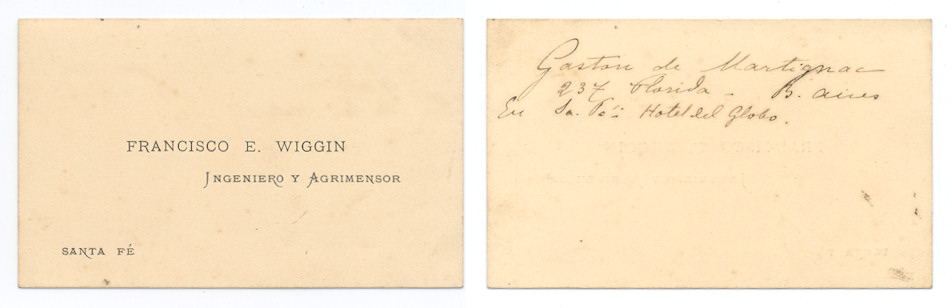 FRANCISCO E. WIGGIN
INGENIERO Y AGRIMENSOR
SANTA FÉ
Gaston de Martignac
237 Florida - B. aires
En Sa. Fé: Hotel del Globo.